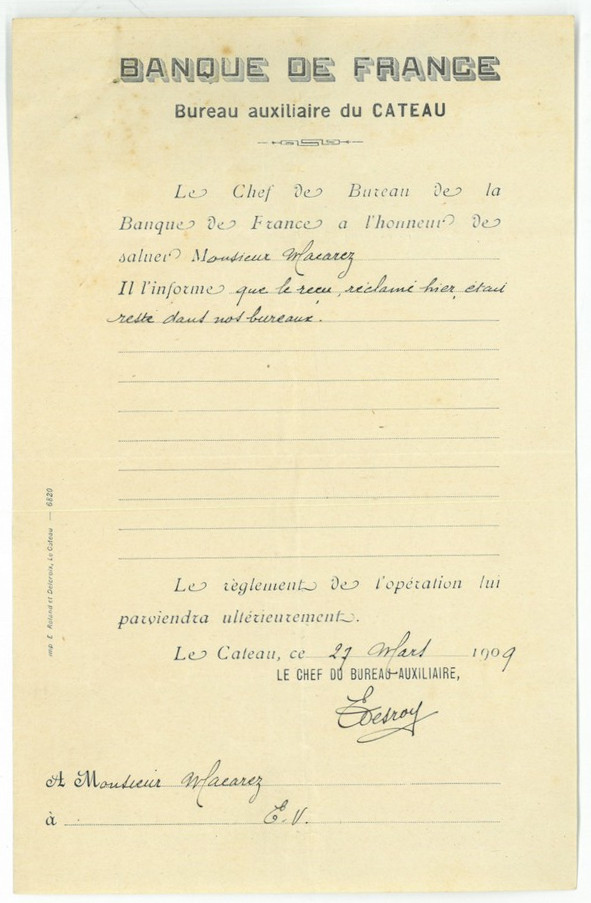 BANQUE DE FRANCE
Bureau auxiliaire du CATEAU
Le Chef de Bureau de la
Banque de France a l'honneur de
saluer Monsieur Macarez
Il l'informe que le reçu, réclamé hier, était
resté dans nos bureaux.
Le règlement de l'opération lui
parviendra ultérieurement.
Le Cateau, ce 27 Mars 1909
LE CHEF DU BUREAU AUXILIAIRE,
A Monsieur Macarez
à E.V.
Imp. E. Roland et Delcroix, Le Cateau — 6820